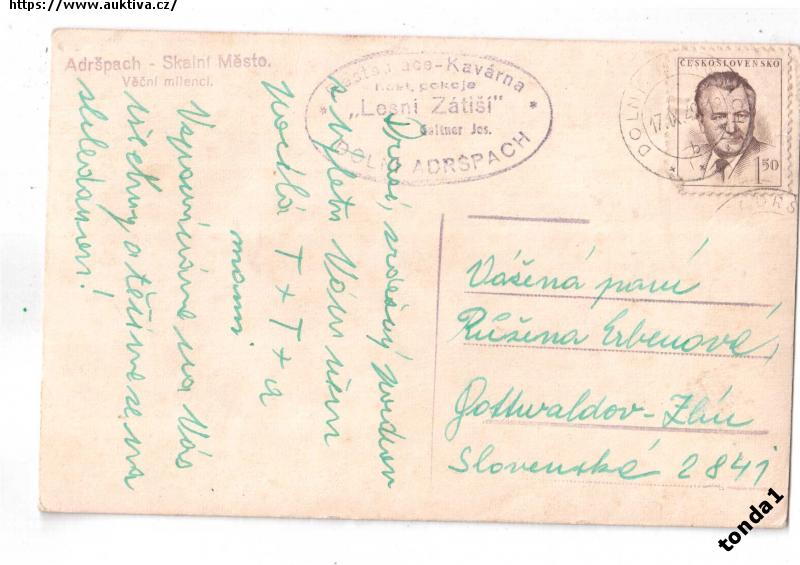 https://www.auktiva.cz/
Adršpach - Skalní Město.
Věční milenci.
Restaurace-Kavárna
Host. pokoje
"Lesní Zátiší"
Galtner Jos.
DOLNÍ ADRŠPACH
ČESKOSLOVENSKO
1 50
DOLNÍ
17.IX.49
Drazí, srdečný pozdrav
z výletu Vám všem
posílá T + T + a
mami.
Vzpomínáme na Vás
všechny a těšíme se na
shledanou!
Vážená paní
Růžena Erbenová,
Gottwaldov-Zlín
Slovenská 2841
tonda1